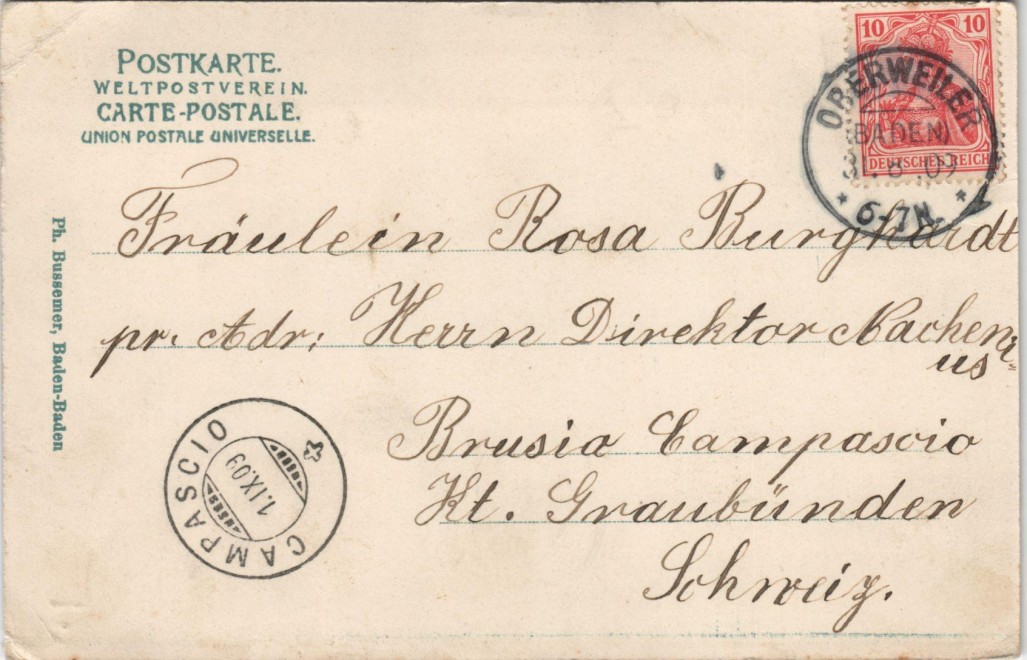 POSTKARTE.
WELTPOSTVEREIN.
CARTE-POSTALE.
UNION POSTALE UNIVERSELLE.
10 10
DEUTSCHES REICH
OBERWEILER
(BADEN)
31.8.09
6-7N.
Fräulein Rosa Burghardt
pr. Adr: Herrn Direktor Nacheni-
us
Brusio Campascio
Kt. Graubünden
Schweiz.
Ph. Bussemer, Baden-Baden
CAMPASCIO
1.IX.09